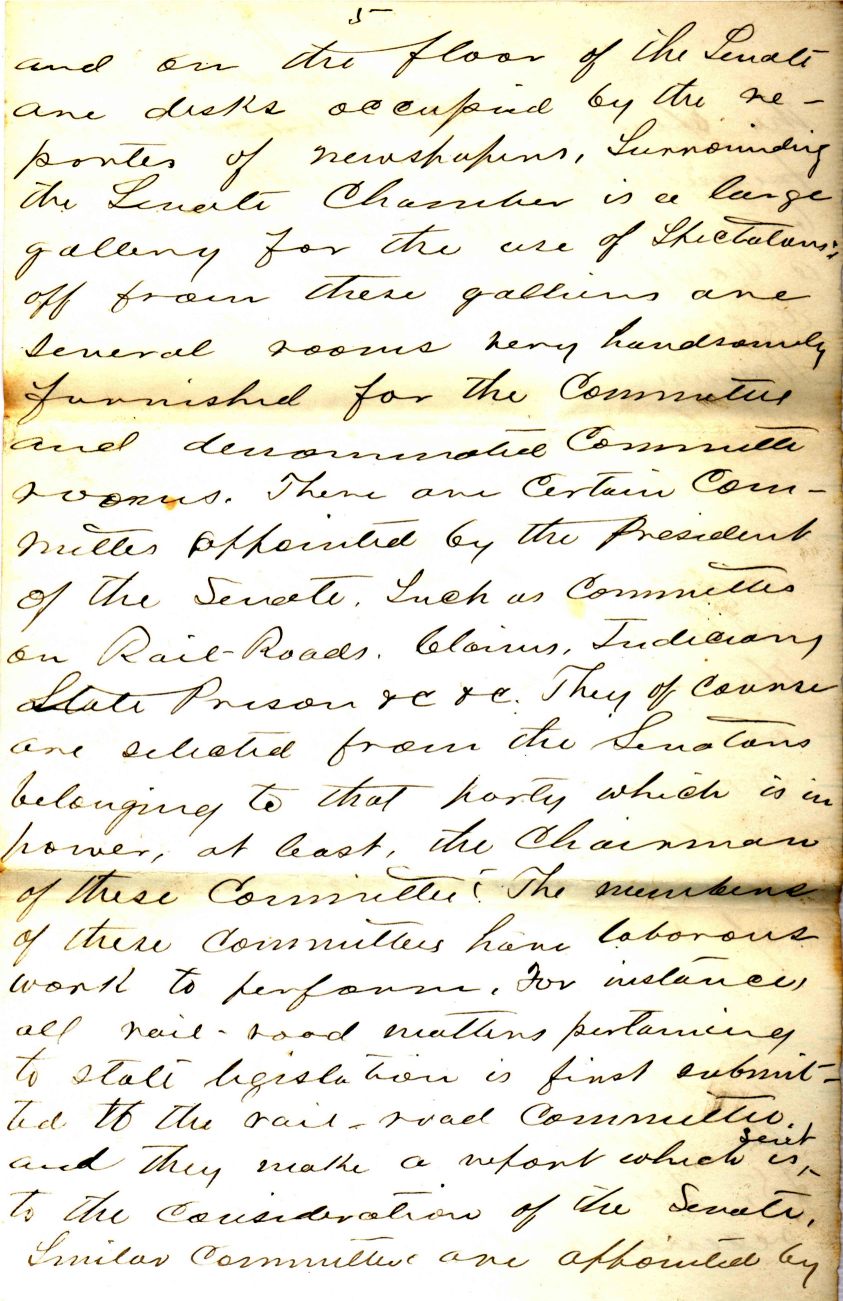 5
and on the floor of the Senate
are disks occupied by the re-
porter of newspapers, Surrounding
the Senate Chamber is a large
gallery for the use of Spectators;
off from these galliens are
several rooms very handsomely
furnished for the Committee
and denominated Committe
rooms. There are Certain Com-
mittes appointed by the President
of the Senate. Such as Committes
on Rail-Roads. Claims, Judiciary
State Prison &c &c. They of Course
are selected from the Senators
belonging to that party which is in
power, at least, the Chairman
of these Committee. The members
of these Committees have laborous
work to perform. For instance,
all rail-road matters pertaining
to state legislation is first submit-
ted to the rail-road Committee.
and they make a report which is, sent
to the consideration of the Senate.
Similar Committee are appointed by